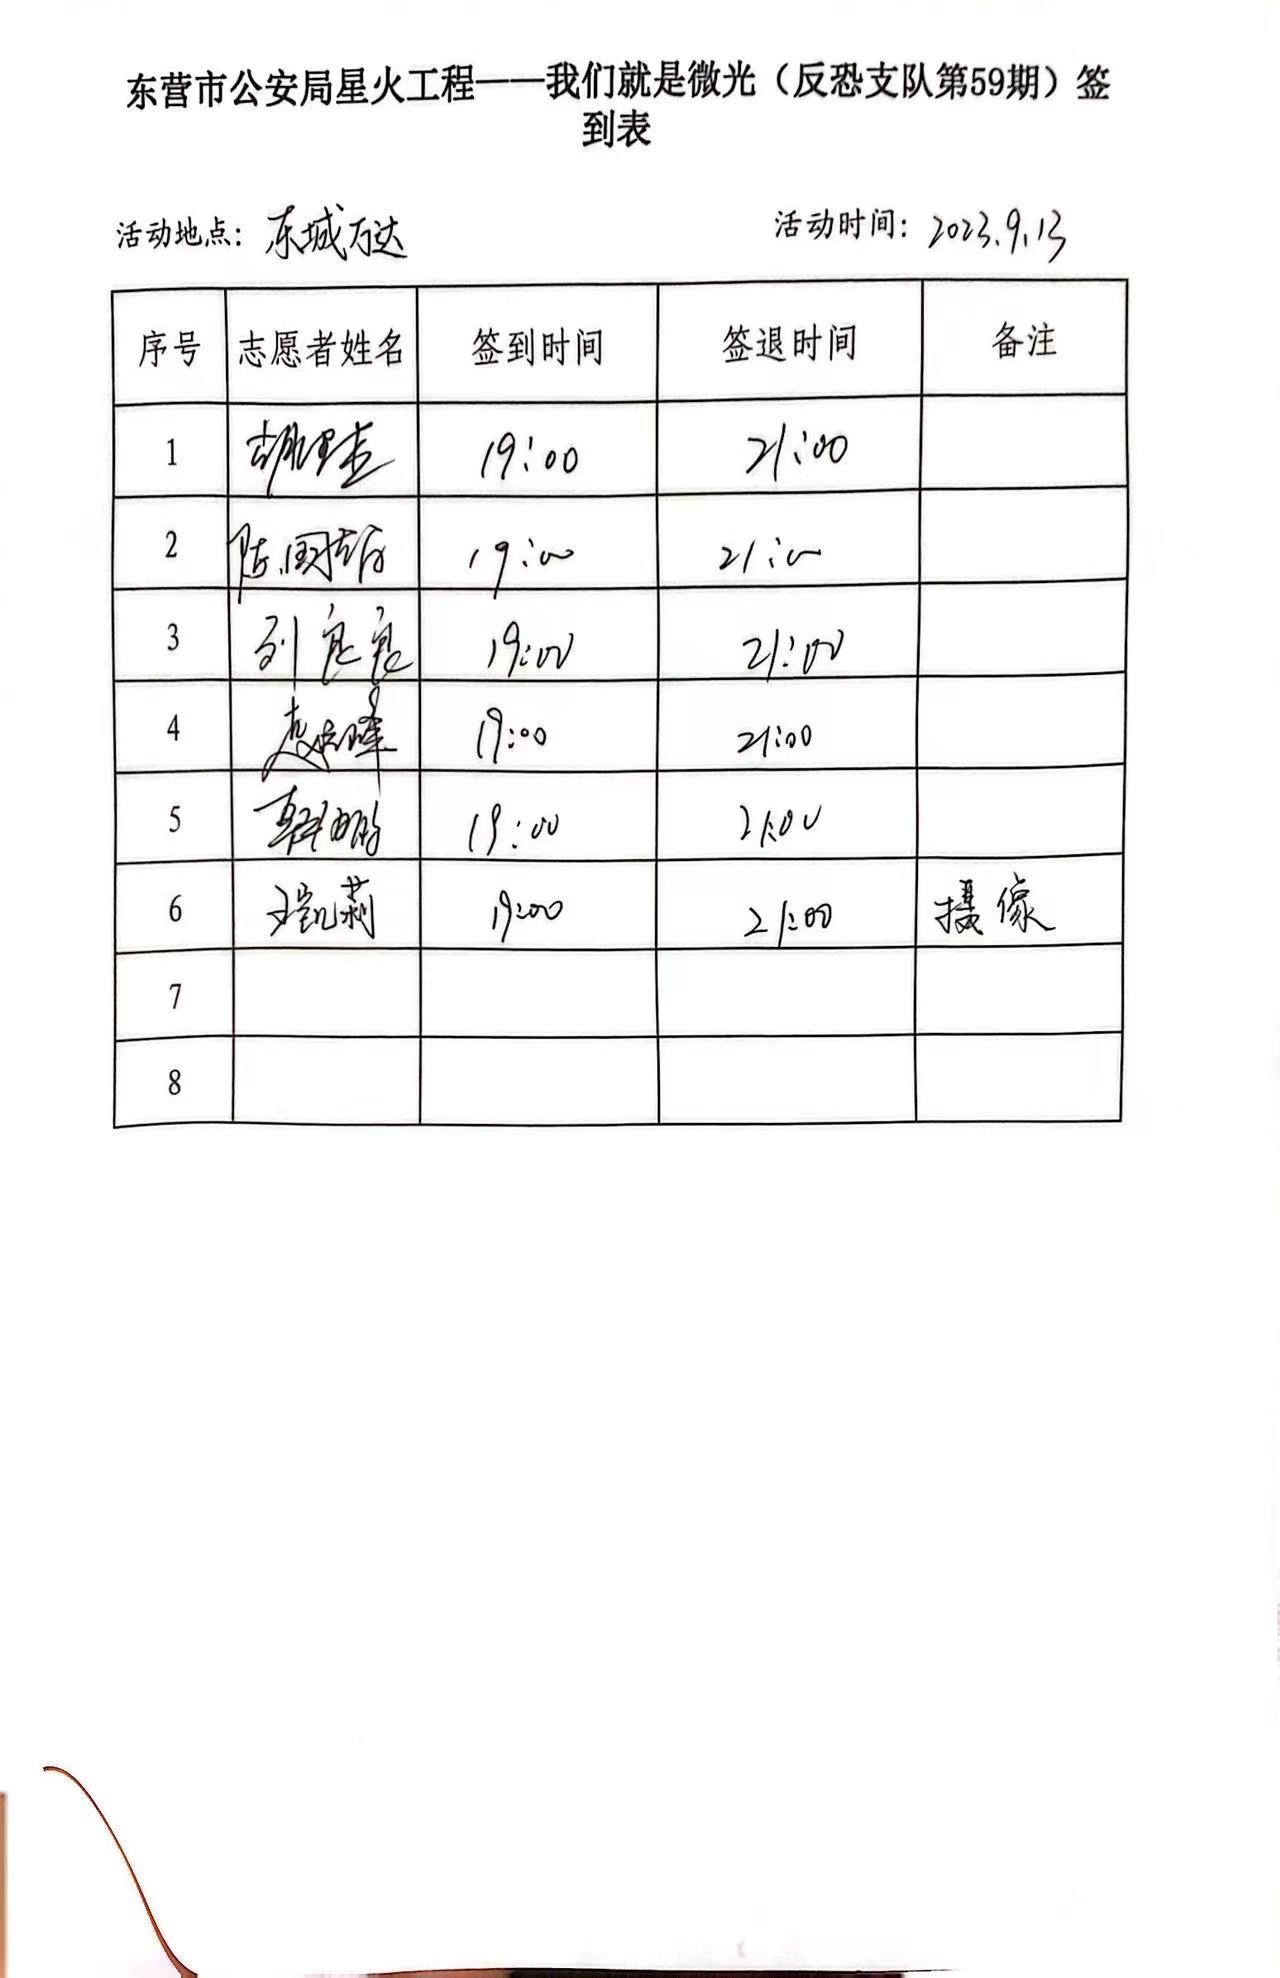 东营市公安局星火工程——我们就是微光（反恐支队第59期）签
到表
活动地点：东城万达 活动时间：2023.9.13
序号 志愿者姓名 签到时间 签退时间 备注
1 19:00 21:00
2 陈国 19:00 21:00
3 刘良良 19:00 21:00
4 19:00 21:00
5 韩 19:00 21:00
6 王凯莉 19:00 21:00 摄像
7
8